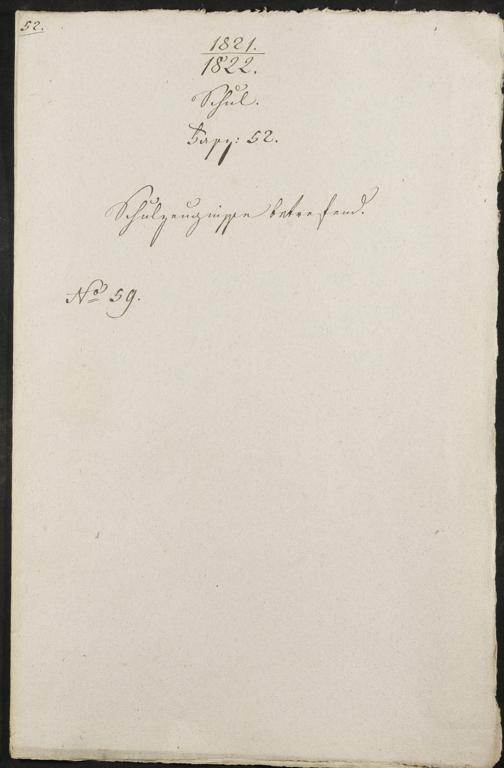 52.
1821.
1822.
Schul.
Fasz: 52.
Schulzeugnisse betreffend.
No 59.